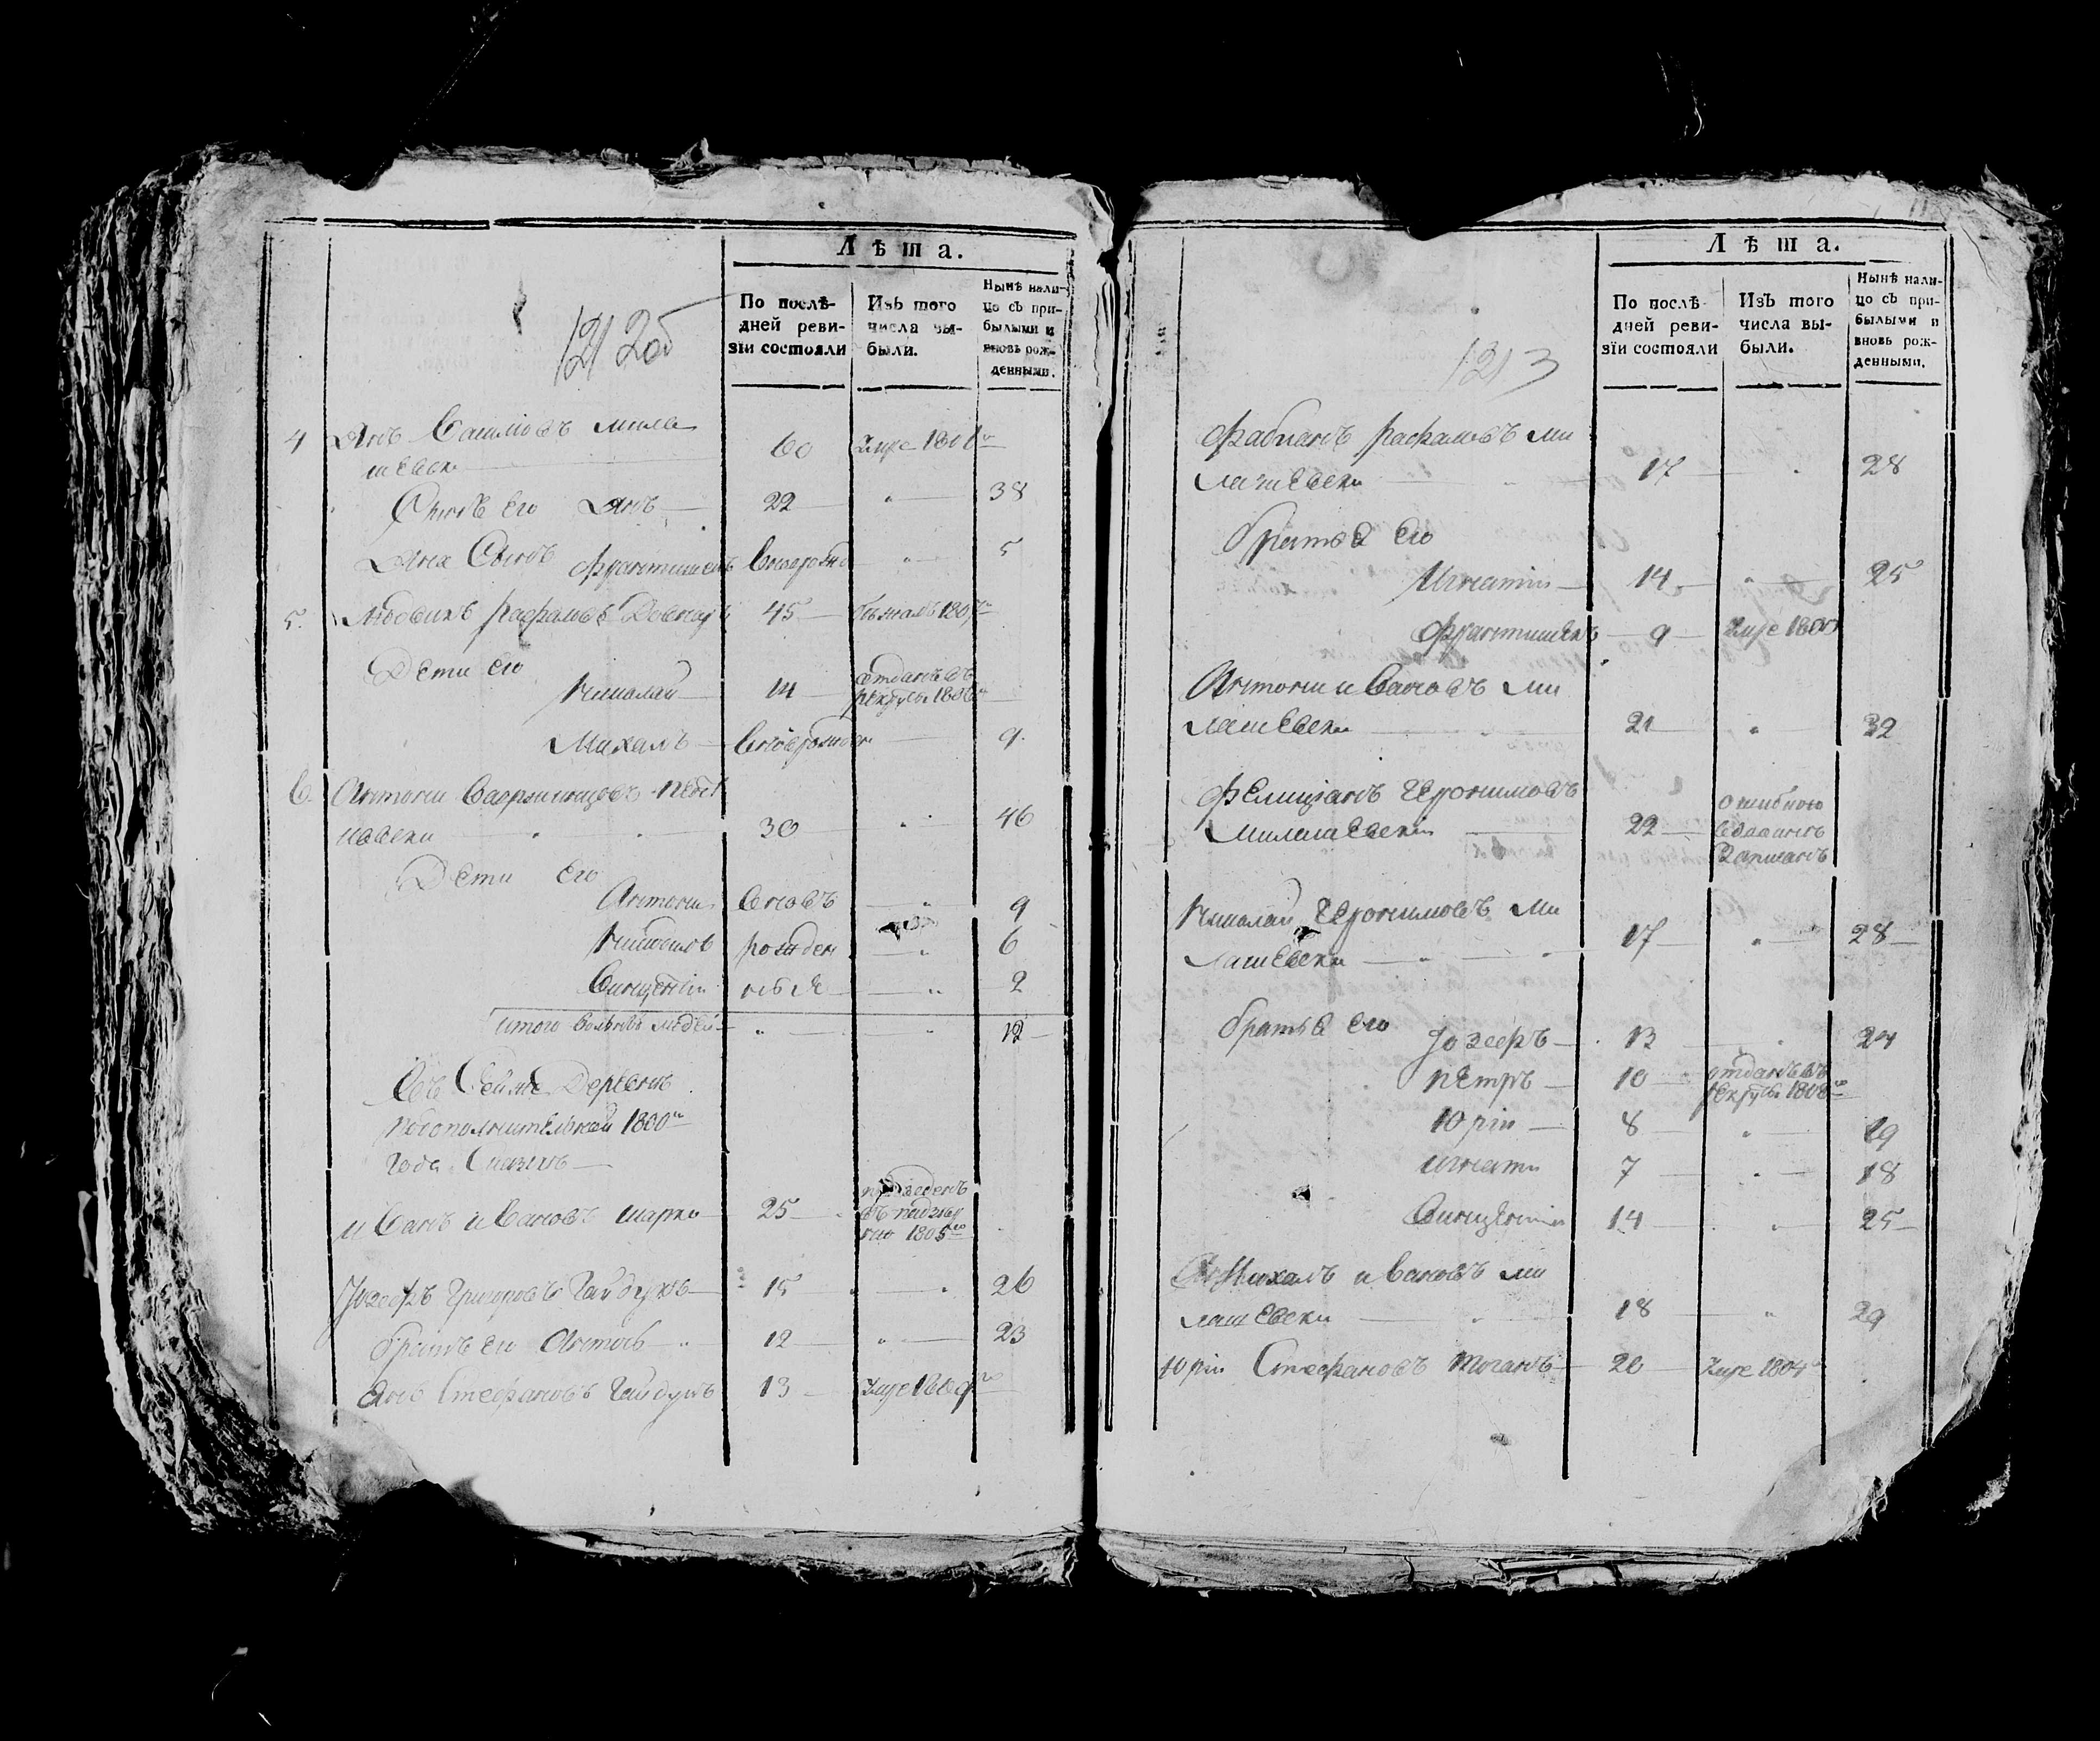 Лѣта.
По послѣ-
дней реви-
зїи состояли
Изъ того
числа вы-
были.
Нынѣ нали-
цо съ при-
былыми и
вновь рож-
денными.
1212об
4 Янъ милa
шевски 60 умре 1801го
Сынъ его Янъ 22 " 38
Яна Сынъ Францишекъ Новорожд " 5
5. Людвикъ рафаловъ 45 бежалъ 180
Дети его
Николай 14 отданъ въ
рекруты 1806го
Михалъ новорожден 9
6. Антони
30 " 46
Дети Его
Антони вновь " 9
рожден " 6
Винценти ныя " 2
итого вольныхъ людей " " 12
Въ Сей же Деревни
По дополнительной 1800го
Года Сказки
иванъ ивановъ шарко 25
1805го
Юзефъ Григоровъ Гайдукъ 15 " 26
братъ его Антонъ 12 " 23
Янъ Стефановъ Гайдукъ 13 умре 1809го
Лѣта.
По послѣ-
дней реви-
зїи состояли
Изъ того
числа вы-
были.
Нынѣ нали-
цо съ при-
былыми и
вновь рож-
денными.
1213
Фабианъ рафаловъ ми
лашевски 17 " 28
братья Его
Игнатии 14 " 25
Францишекъ 9 умре 1800
Антони ивановъ ми
лашевски 21 " 32
Фелицианъ Героничовъ
милашевски 22 ошибкою

Николай Геронимовъ ми
лашевски 17 " 28
братья его Юзефъ 13 " 24
петръ 10 отданъ въ
рекруты 1808го
Юрiи 8 " 19
игнати 7 " 18
Винценти 14 " 25
Михалъ ивановъ ми
лашевски 18 " 29
Юрiи Стефановъ 20 умре 1804